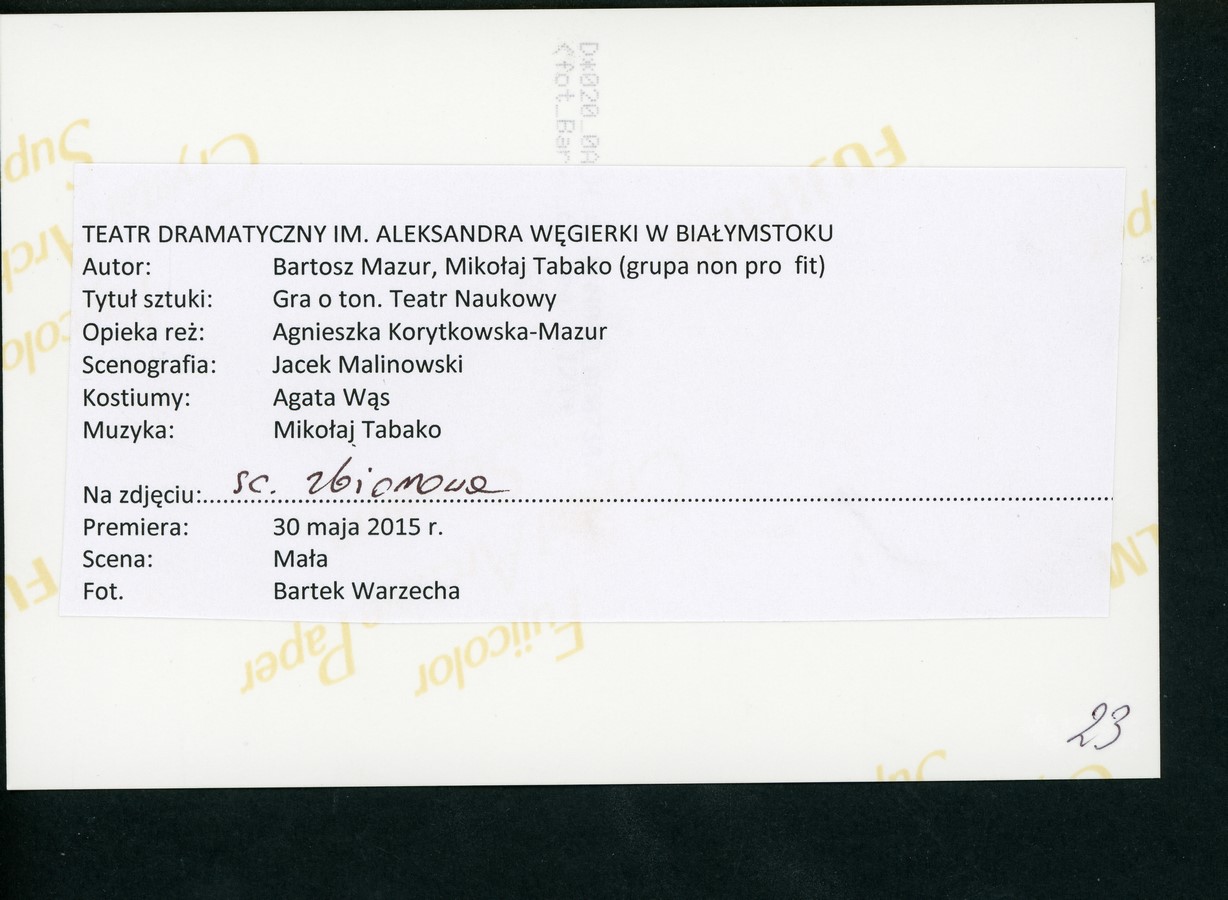 D*020_0A
<fot_Bar
TEATR DRAMATYCZNY IM. ALEKSANDRA WĘGIERKI W BIAŁYMSTOKU
Autor: Bartosz Mazur, Mikołaj Tabako (grupa non pro fit)
Tytuł sztuki: Gra o ton. Teatr Naukowy
Opieka reż: Agnieszka Korytkowska-Mazur
Scenografia: Jacek Malinowski
Kostiumy: Agata Wąs
Muzyka: Mikołaj Tabako
Na zdjęciu: sc. zbiorowa
Premiera: 30 maja 2015 r.
Scena: Mała
Fot. Bartek Warzecha
Fujicolor
Paper
23